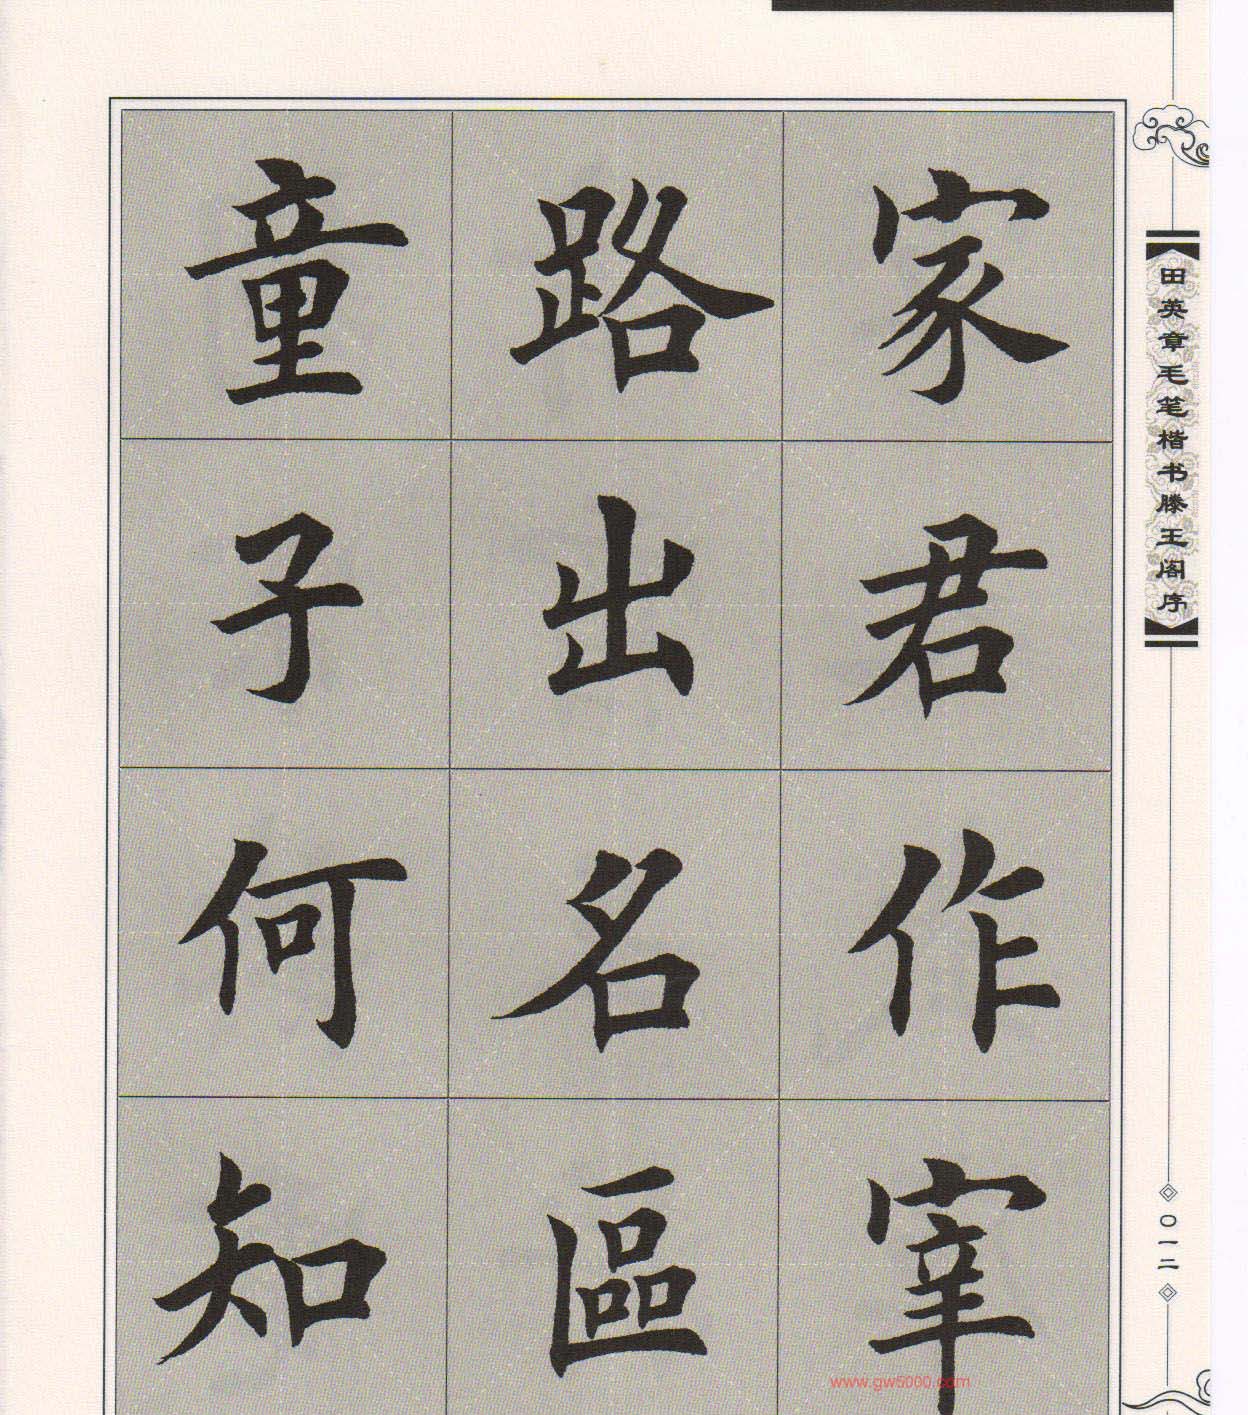 家君作宰
路出名區
童子何知
田英章毛笔楷书滕王阁序
〇一二
www.gw5000.com